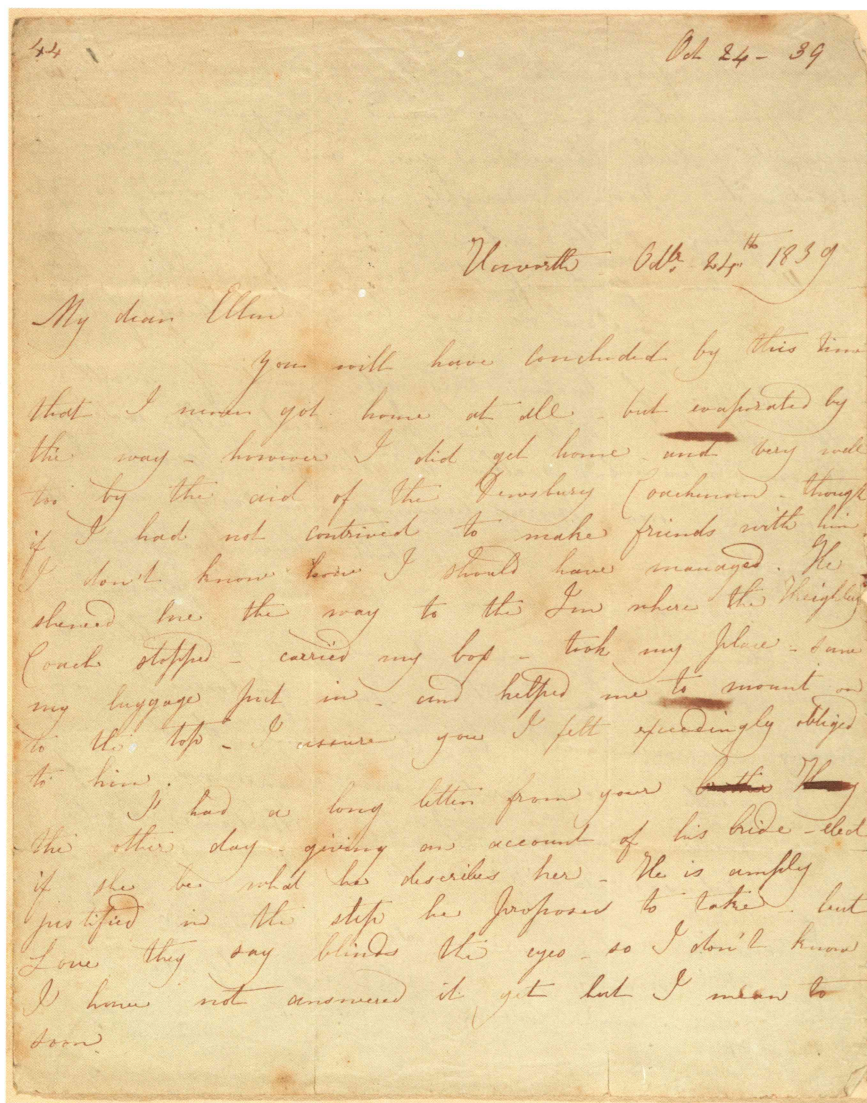 44
Oct 24 - 39
Haworth Octbr 24th 1839
My dear Ellen
You will have concluded by this time
that I never got home at all - but evaporated by
the way - however I did get home and very well
too by the aid of the Dewsbury Coachman - though
if I had not contrived to make friends with him
I don't know how I should have managed. He
shewed me the way to the Inn where the Keighley
Coach stopped - carried my box - took my place - saw
my luggage put in - and helped me to mount on
to the top - I assure you I felt exceedingly obliged
to him.
I had a long letter from your brother Henry
the other day - giving an account of his bride-elect
if she be what he describes her - He is amply
justified in the step he proposes to take - but
Love they say blinds the eyes - so I don't know
I have not answered it yet but I mean to
soon